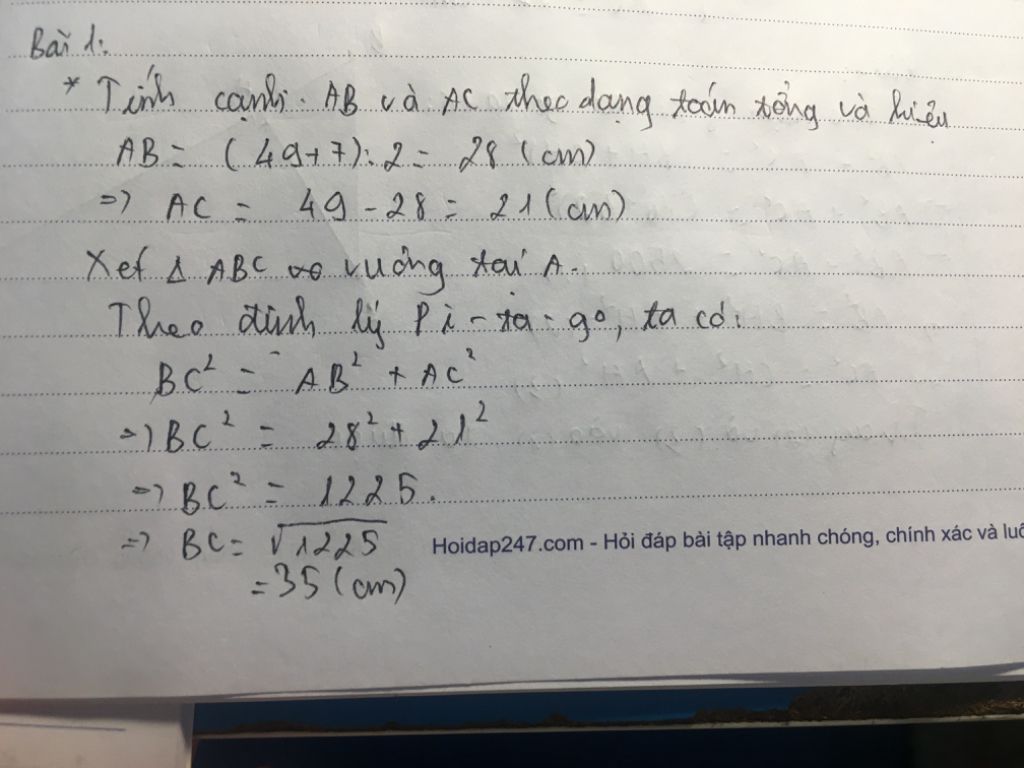 Bài 1:
* Tính cạnh AB và AC theo dạng toán tổng và hiệu
AB = (49+7):2 = 28 (cm)
=> AC = 49 - 28 = 21 (cm)
Xét Δ ABC vuông tại A.
Theo định lý Pi-ta-go, ta có:
BC² = AB² + AC²
=> BC² = 28² + 21²
=> BC² = 1225.
=> BC = √1225
= 35 (cm)
Hoidap247.com - Hỏi đáp bài tập nhanh chóng, chính xác và luô